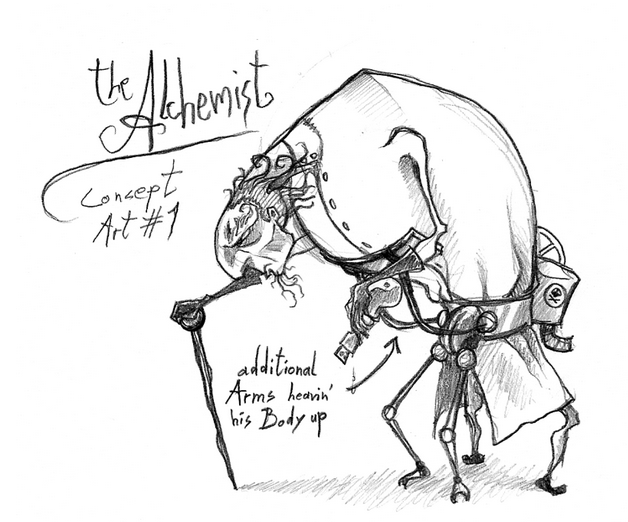 the Alchemist
Concept
Art #1
additional
Arms heavin'
his Body up